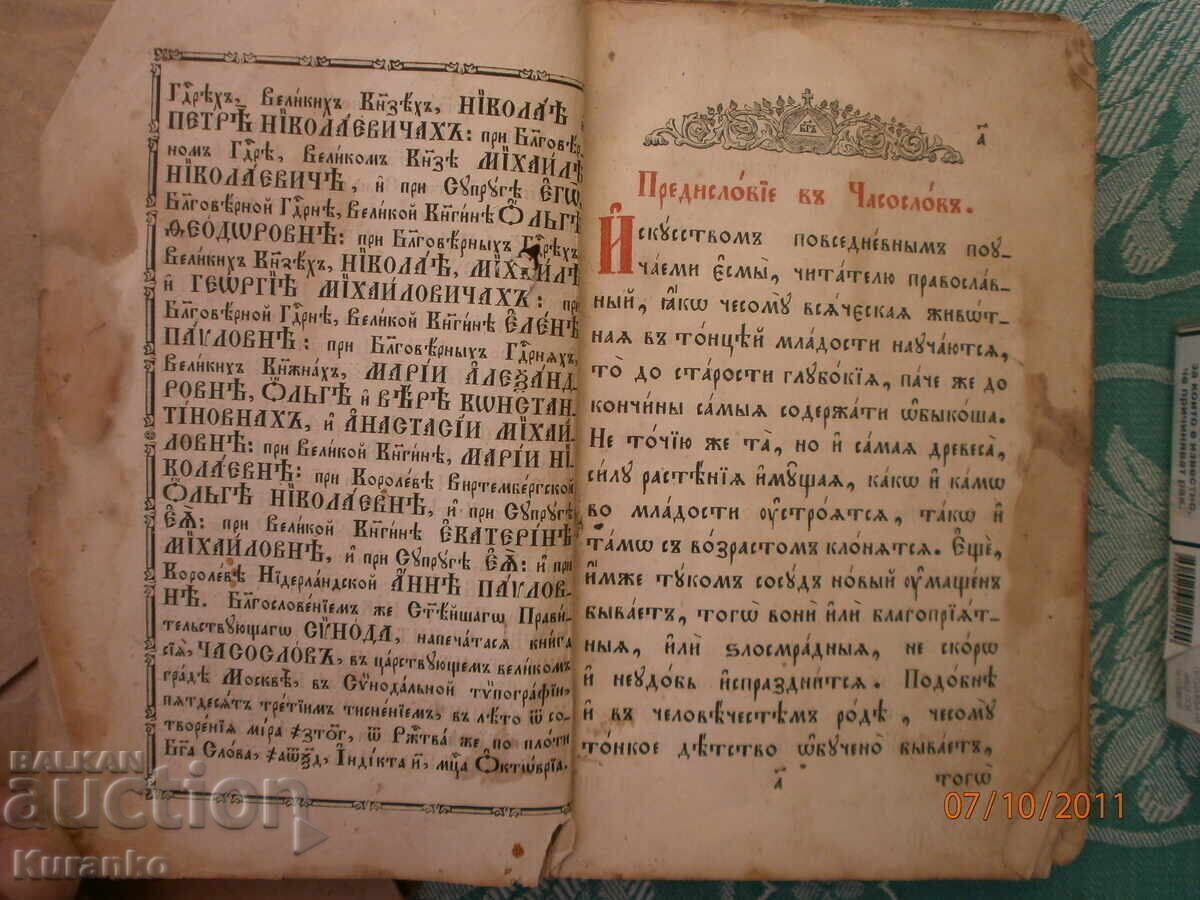 Гдⷭ҇рѣхъ, Вели́кихъ Кнѧ҃зѣхъ, НЇКОЛА́Ѣ
ПЕТРѢ̀ НЇКОЛА́ЕВИЧАХЪ: при Бл҃говѣ́р-
номъ Гдⷭ҇рѣ, Вели́комъ Кнѧ҃зѣ МЇХАИ́ЛѢ
НЇКОЛА́ЕВИЧѢ, и҆ при Сꙋпрꙋ́гѣ Є҆гѡ̀,
Бл҃говѣ́рной Гдⷭ҇рнѣ, Вели́кой Кнѧги́нѣ Ѻ҆́ЛЬГѢ
ѲЕО́ДѠРОВНѢ: при Бл҃говѣ́рныхъ Гдⷭ҇рѣхъ
Вели́кихъ Кнѧ҃зѣхъ, НЇКОЛА́Ѣ, МЇХАИ́ЛѢ
и҆ ГЕѠ́РГЇѢ МЇХА́ИЛОВИЧАХЪ: при
Бл҃говѣ́рной Гдⷭ҇рнѣ, Вели́кой Кнѧги́нѣ Є҆ЛЕ́НѢ
ПА́ѴЛОВНѢ: при Бл҃говѣ́рныхъ Гдⷭ҇рнѧхъ,
Вели́кихъ Кнѧжна́хъ, МАРІ́И А҆ЛЕѮА́НД
РОВНѢ, Ѻ҆́ЛЬГѢ и҆ ВѢ́РѢ КѠНСТАН
ТІ́НОВНАХЪ, и҆ А҆НАСТАСІ́И МЇХА́И
ЛОВНѢ: при Вели́кой Кнѧги́нѣ, МАРІ́И НЇ
КОЛА́ЕВНѢ: при Короле́вѣ Виртембе́ргской
Ѻ҆́ЛЬГѢ НЇКОЛА́ЕВНѢ, и҆ при Сꙋпрꙋ́гѣ
Є҆Ѧ̀: при Вели́кой Кнѧги́нѣ Є҆КАТЕРІ́НѢ
МЇХА́ИЛОВНѢ, и҆ при Сꙋпрꙋ́гѣ Є҆ѧ̀: и҆ при
Короле́вѣ Нїдерла́ндской А҆́ННѢ ПА́ѴЛОВ-
НѢ. Бл҃гослове́нїемъ же Ст҃ѣ́йшагѡ Прави́-
тельствꙋющагѡ СѴНО́ДА, напеча́тасѧ кни́га
сїѧ̀, ЧАСОСЛО́ВЪ, въ ца́рствꙋющемъ вели́комъ
гра́дѣ Москвѣ̀, въ Сѵнода́льной тѵпогра́фїи,
пѧтьдесѧ́тъ тре́тїимъ тисне́нїемъ, въ лѣ́то ѿ со-
творе́нїѧ мі́ра ҂зто҃г, ѿ Рж҃тва̀ же по пло́ти
Бг҃а Сло́ва, ҂аѡ҃ѯд, І҆ндї́кта и҃, мц҃а Ѻ҆ктѡ́врїа.
а҃
БГЪ
Предисло́вїе въ Часосло́въ.
И҆скꙋсствомъ повседне́внымъ поꙋ-
ча́еми є҆смы̀, чита́телю правосла́в-
ный, ꙗ҆́кѡ чесомꙋ̀ всѧ́ческаѧ живѡ́т-
наѧ въ то́нцѣй мла́дости наꙋча́ютсѧ,
то̀ до ста́рости глꙋбо́кїѧ, па́че же до
кончи́ны са́мыѧ содержа́ти ѡ҆быко́ша.
Не то́чїю же та̀, но и҆ са́маѧ древеса̀,
си́лꙋ расте́нїѧ и҆мꙋ́щаѧ, ка́кѡ и҆ ка́мѡ
во мла́дости ᲂу҆стро́ѧтсѧ, та́кѡ и҆
та́мѡ съ во́зрастомъ клонѧ́тсѧ. Є҆щѐ,
и҆́мже тꙋ́комъ сосꙋ́дъ но́вый ᲂу҆ма́щенъ
быва́етъ, тогѡ̀ вонѝ и҆лѝ благопрїѧ́т-
ныѧ, и҆лѝ ѕлосмра́дныѧ, не ско́рѡ
и҆ неꙋдо́бь и҆спраздни́тсѧ. Подо́бнѣ
и҆ въ человѣ́честѣмъ ро́дѣ, чесомꙋ̀
то́нкое дѣ́тство ѡ҆бꙋче́но быва́етъ,
а҃
тогѡ̀
BALKAN
auction
Kuranko
07/10/2011